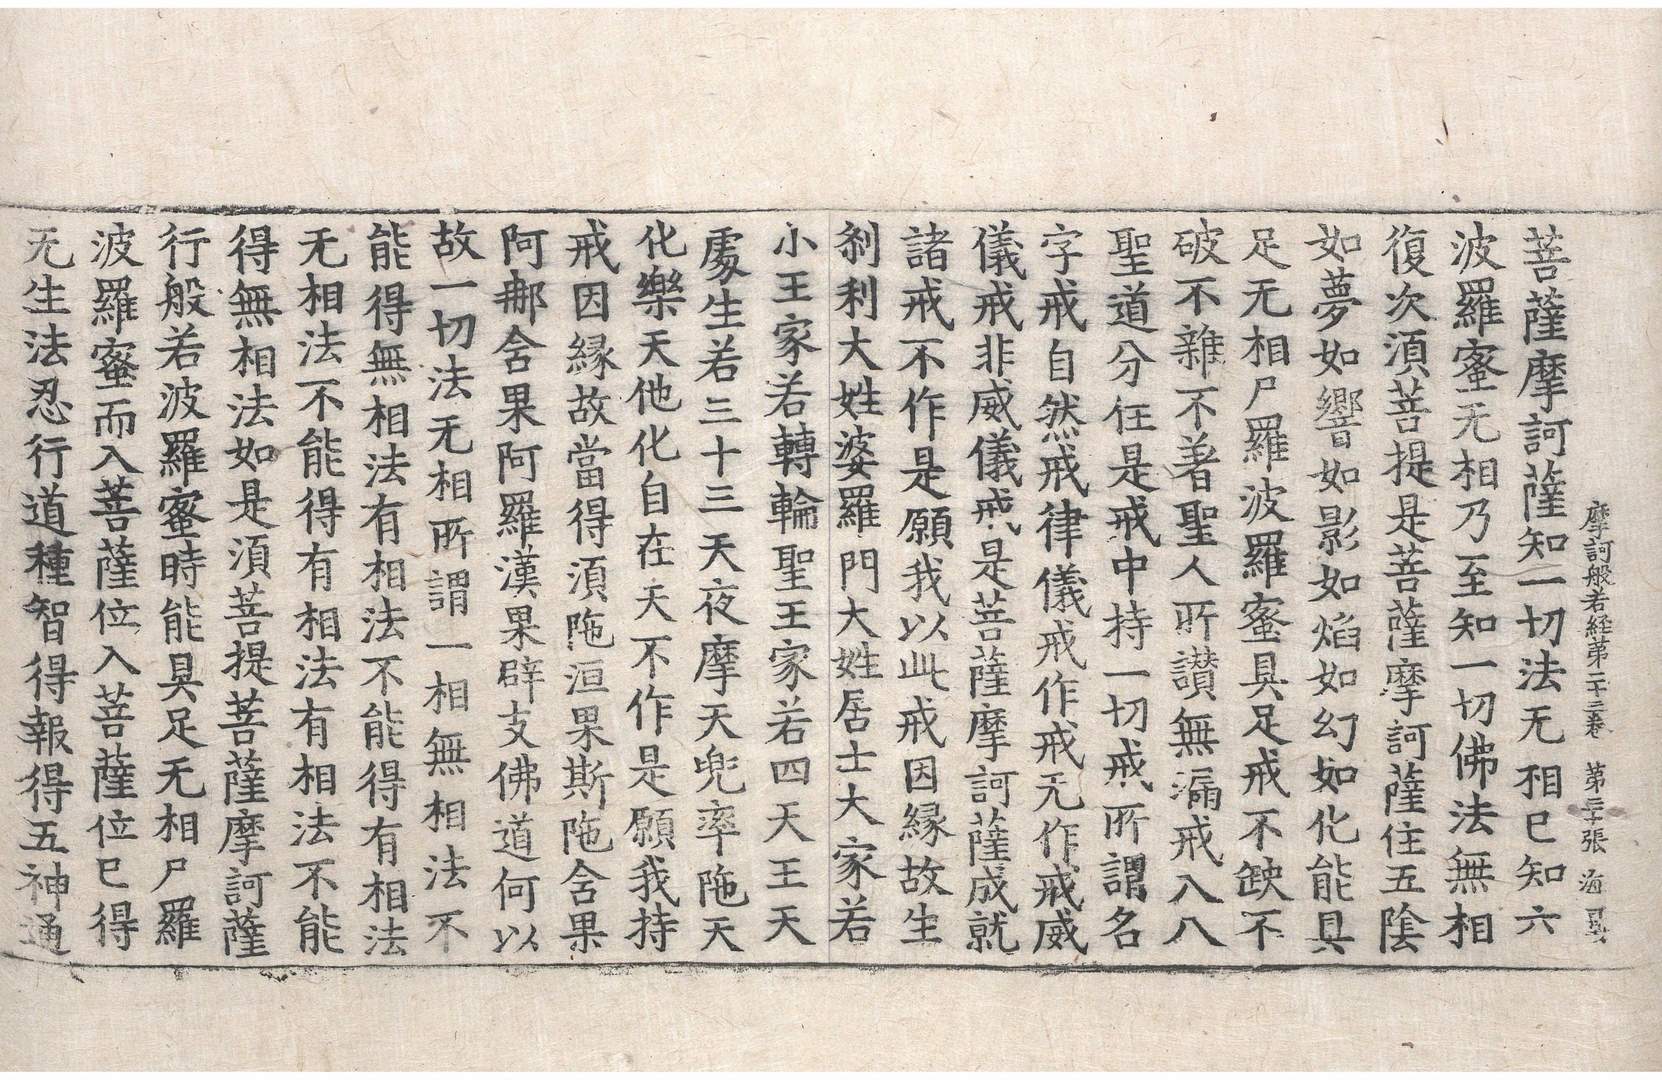 摩訶般若経苐二十三卷 苐三十張 海
菩薩摩訶薩知一切法无相已知六
波羅蜜无相乃至知一切佛法無相
復次湏菩提是菩薩摩訶薩住五陰
如夢如響如影如焰如幻如化能具
足无相尸羅波羅蜜具足戒不缺不
破不雜不著聖人所讃無漏戒入八
聖道分住是戒中持一切戒所謂名
字戒自然戒律儀戒作戒无作戒威
儀戒非威儀戒是菩薩摩訶薩成就
諸戒不作是願我以此戒因縁故生
刹利大姓婆羅門大姓居士大家若
小王家若轉輪聖王家若四天王天
處生若三十三天夜摩天兜率陁天
化樂天他化自在天不作是願我持
戒因縁故當得湏陁洹果斯陁含果
阿那含果阿羅漢果辟支佛道何以
故一切法无相所謂一相無相法不
能得無相法有相法不能得有相法
无相法不能得有相法有相法不能
得無相法如是湏菩提菩薩摩訶薩
行般若波羅蜜時能具足无相尸羅
波羅蜜而入菩薩位入菩薩位已得
无生法忍行道種智得報得五神通